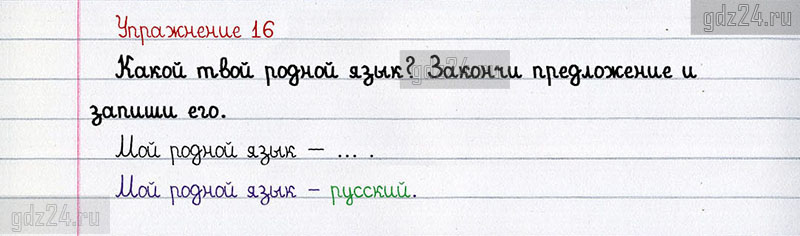 gdz24.ru
Упражнение 16
Какой твой родной язык? Закончи предложение и
gdz24.ru
запиши его.
Мой родной язык — ... .
Мой родной язык - русский.
gdz24.ru